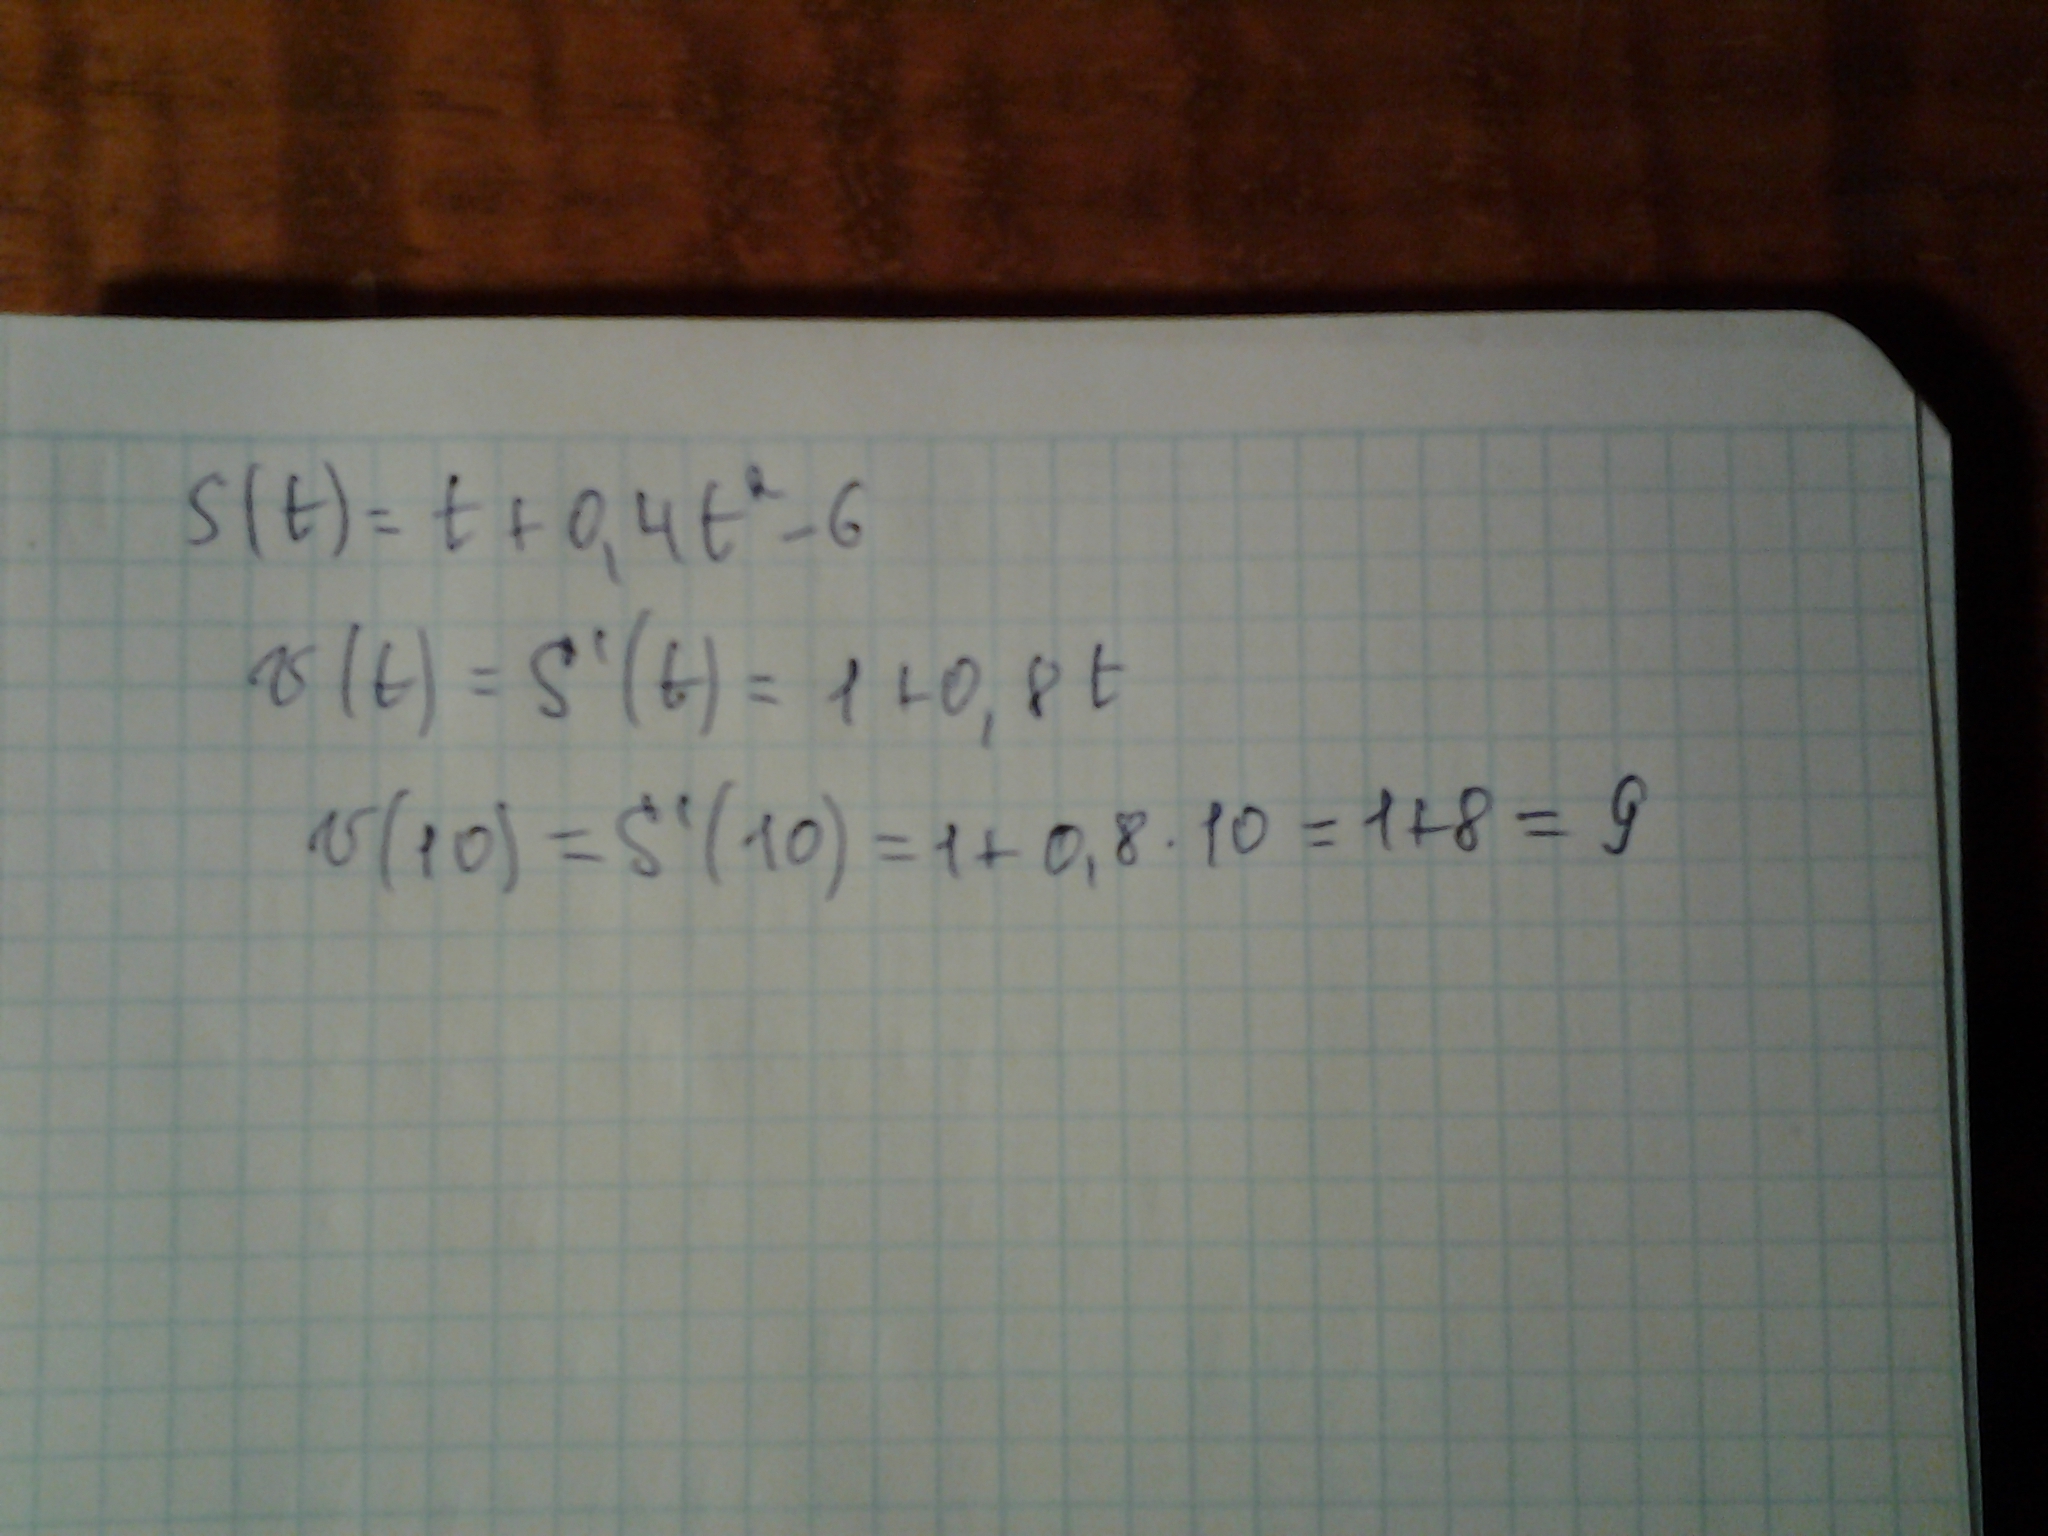 S(t) = t + 0,4t² - 6
v(t) = S'(t) = 1 + 0,8t
v(10) = S'(10) = 1 + 0,8 · 10 = 1 + 8 = 9